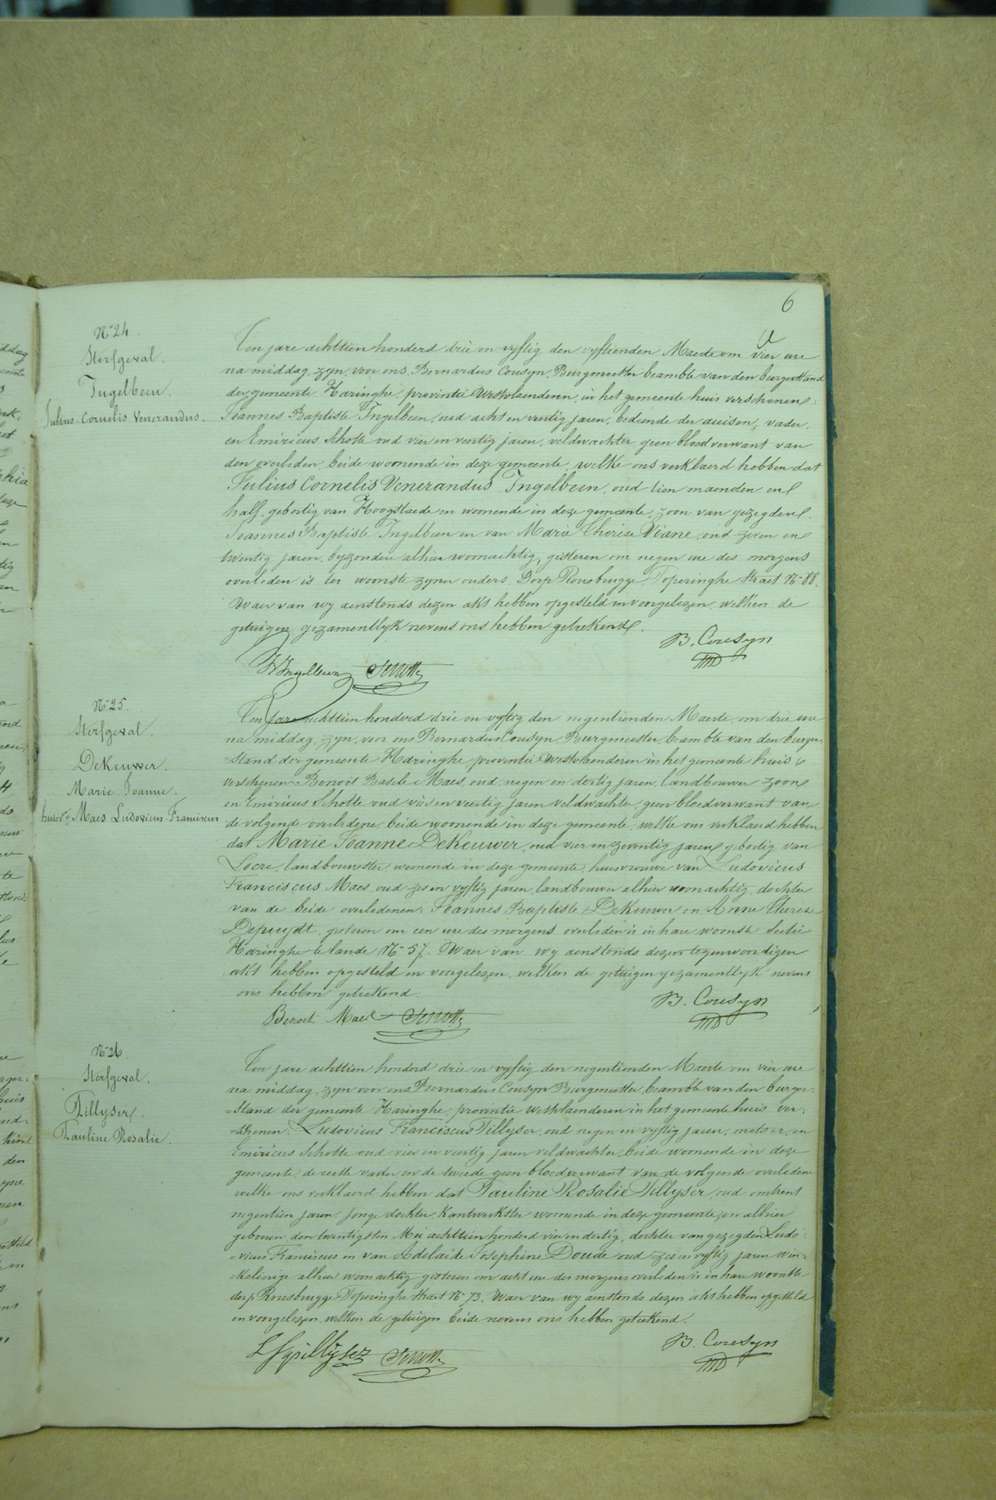 6
N° 24.
Sterfgeval.
Ingelbeen.
Julius Cornelis Venerandus.
Ten jare achttien honderd drie en vyftig den vyftienden Maerte om vier ure
na middag, zyn, voor ons Bernardus Cousyn, Burgmeester beambte van den burgerstand
der gemeente Haringhe, provintie Westvlaenderen, in het gemeente huis verschenen:
Joannes Baptiste Ingelbeen, oud acht en veertig jaren, bediende der accisen, vader,
en Emiricus Schotte oud vier en veertig jaren, veldwachter, geen bloedverwant van
den overleden beide woonende in deze gemeente, welke ons verklaerd hebben dat
Julius Cornelis Venerandus Ingelbeen, oud tien maenden en
half, geboortig van Hoogstaede en woonende in deze gemeente, zoon van gezegden
Joannes Baptiste Ingelbeen en van Marie Therese Viane, oud zeven en
twintig jaren, byzondere alhier woonachtig, gisteren om negen ure des morgens
overleden is ter woonste zyner ouders, Dorp Rousbrugge, Poperinghe straet N° 88.
Waer van wy aenstonds dezen akt hebben opgesteld en voorgelezen, welken de
getuigen gezamentlyk nevens ons hebben geteekend.
B. Cousyn
Ingelbeen Schotte
N° 25.
Sterfgeval.
DeKeuwer.
Marie Joanne.
huisv. Maes Ludovicus Franciscus
Ten jare achttien honderd drie en vyftig den negentienden Maerte, om drie ure
na middag, zyn, voor ons Bernardus Cousyn, Burgmeester, beambte van den burger-
stand der gemeente Haringhe provintie Westvlaenderen in het gemeente huis
verschenen: Benoit Basile Maes, oud negen en dertig jaren, landbouwer, zoon
en Emiricus Schotte oud vier en veertig jaren veldwachter, geen bloedverwant van
de volgende overledene, beide woonende in deze gemeente, welke ons verklaerd hebben
dat Marie Joanne DeKeuwer, oud vier en zeventig jaren, geboortig van
Locre, landbouwster, woonende in deze gemeente, huisvrouwe van Ludovicus
Franciscus Maes, oud zes en vyftig jaren, landbouwer alhier woonachtig, dochter
van de beide overledenen: Joannes Baptiste DeKeuwer en Anne Therese
Depuydt, gisteren om een ure des morgens overleden is in hare woonst Sectie
Haringhe te lande N° 57. Waer van wy aenstonds dezen tegenwoordigen
akt hebben opgesteld en voorgelezen, welken de getuigen gezamentlyk nevens
ons hebben geteekend.
B. Cousyn
Benoit Maes Schotte
N° 26
Sterfgeval.
Tillyser.
Pauline Rosalie.
Ten jare achttien honderd drie en vyftig den negentienden Maerte om vier ure
na middag, zyn voor ons Bernardus Cousyn Burgmeester, beambte van den burger-
stand der gemeente Haringhe, provintie Westvlaenderen in het gemeente huis, ver-
schenen: Ludovicus Franciscus Tillyser, oud negen en vyftig jaren, metser, en
Emiricus Schotte oud vier en veertig jaren veldwachter, beide woonende in deze
gemeente, de eerste vader en de tweede geen bloedverwant van de volgende overledene
welke ons verklaerd hebben dat Pauline Rosalie Tillyser, oud omtrent
negentien jaren, jonge dochter, kantwerkster woonende in deze gemeente, en alhier
geboren den twintigsten Mei achttien honderd vier en dertig, dochter van gezegden Ludo-
vicus Franciscus en van Adelaide Josephine Doude oud zes en vyftig jaren win-
kelierige alhier woonachtig, gisteren om acht ure des morgens overleden is in hare woonste
dorp Rousbrugge Poperinghe straet N° 73. Waer van wy aenstonds dezen akt hebben opgesteld
en voorgelezen, welken de getuigen beide nevens ons hebben geteekend.
B. Cousyn
Schotte